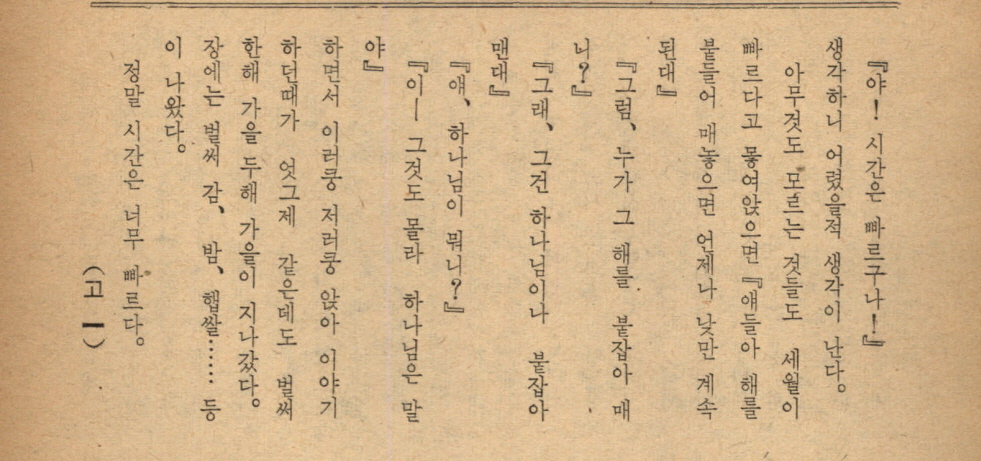 『야! 시간은 빠르구나!』
생각하니 어렸을적 생각이 난다.
아무것도 모르는 것들도 세월이
빠르다고 뫃여앉으면 『얘들아 해를
붙들어 매놓으면 언제나 낮만 계속
된대』
『그럼, 누가 그 해를 붙잡아 매
니?』
『그래, 그건 하나님이나 붙잡아
맨대』
『얘, 하나님이 뭐니?』
『이— 그것도 몰라 하나님은 말
야』
하면서 이러쿵 저러쿵 앉아 이야기
하던때가 엇그제 같은데도 벌써
한해 가을 두해 가을이 지나갔다.
장에는 벌써 감, 밤, 햅쌀…… 등
이 나왔다.
정말 시간은 너무 빠르다.
(고 一)